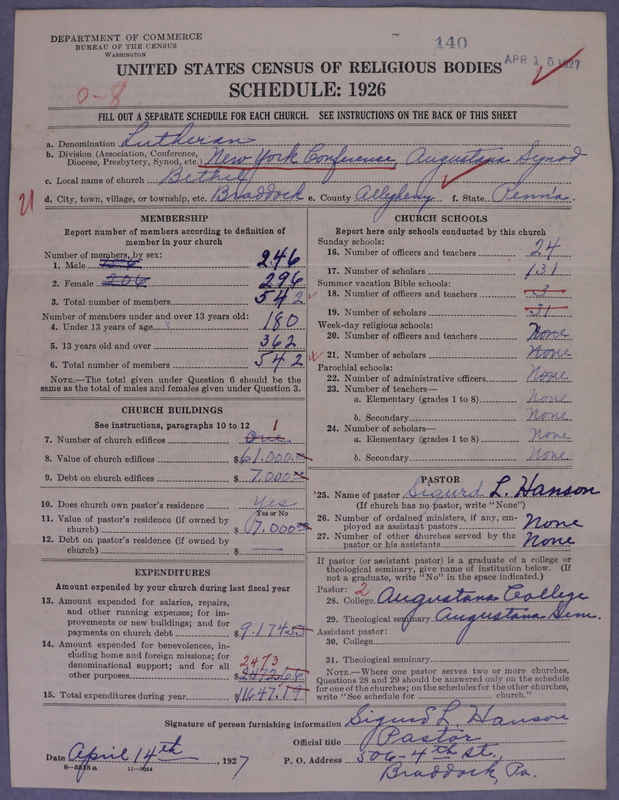 DEPARTMENT OF COMMERCE
BUREAU OF THE CENSUS
WASHINGTON
140
APR 15 1927
UNITED STATES CENSUS OF RELIGIOUS BODIES
SCHEDULE: 1926
0-8
FILL OUT A SEPARATE SCHEDULE FOR EACH CHURCH. SEE INSTRUCTIONS ON THE BACK OF THIS SHEET
a. Denomination Lutheran
b. Division (Association, Conference, Diocese, Presbytery, Synod, etc.) New York Conference, Augustana Synod
c. Local name of church Bethel
d. City, town, village, or township, etc. Braddock e. County Allegheny f. State Penn'a.
MEMBERSHIP
Report number of members according to definition of
member in your church
Number of members, by sex:
1. Male 246
2. Female 206 296
3. Total number of members 542
Number of members under and over 13 years old:
4. Under 13 years of age 180
5. 13 years old and over 362
6. Total number of members 542
NOTE.—The total given under Question 6 should be the
same as the total of males and females given under Question 3.
CHURCH BUILDINGS
See instructions, paragraphs 10 to 12
7. Number of church edifices One 1
8. Value of church edifices $61,000
9. Debt on church edifices $7,000
10. Does church own pastor's residence Yes
Yes or No
11. Value of pastor's residence (if owned by
church) $17,000
12. Debt on pastor's residence (if owned by
church) $
EXPENDITURES
Amount expended by your church during last fiscal year
13. Amount expended for salaries, repairs,
and other running expenses; for im-
provements or new buildings; and for
payments on church debt $9,174.55
14. Amount expended for benevolences, in-
cluding home and foreign missions; for
denominational support; and for all
other purposes 2473 $2472.64
15. Total expenditures during year $11647.19
CHURCH SCHOOLS
Report here only schools conducted by this church
Sunday schools:
16. Number of officers and teachers 24
17. Number of scholars 131
Summer vacation Bible schools:
18. Number of officers and teachers 3
19. Number of scholars 31
Week-day religious schools:
20. Number of officers and teachers None
21. Number of scholars None
Parochial schools:
22. Number of administrative officers None
23. Number of teachers—
a. Elementary (grades 1 to 8) None
b. Secondary None
24. Number of scholars—
a. Elementary (grades 1 to 8) None
b. Secondary None
PASTOR
25. Name of pastor Sigurd L. Hanson
(If church has no pastor, write "None")
26. Number of ordained ministers, if any, em-
ployed as assistant pastors None
27. Number of other churches served by the
pastor or his assistants None
If pastor (or assistant pastor) is a graduate of a college or
theological seminary, give name of institution below. (If
not a graduate, write "No" in the space indicated.)
Pastor: 2
28. College Augustana College
29. Theological seminary Augustana Sem.
Assistant pastor:
30. College
31. Theological seminary
NOTE.—Where one pastor serves two or more churches,
Questions 28 and 29 should be answered only on the schedule
for one of the churches; on the schedules for the other churches,
write "See schedule for church."
Signature of person furnishing information Sigurd L. Hanson
Official title Pastor
Date April 14th, 1927 P. O. Address 506-4th St.,
Braddock, Pa.